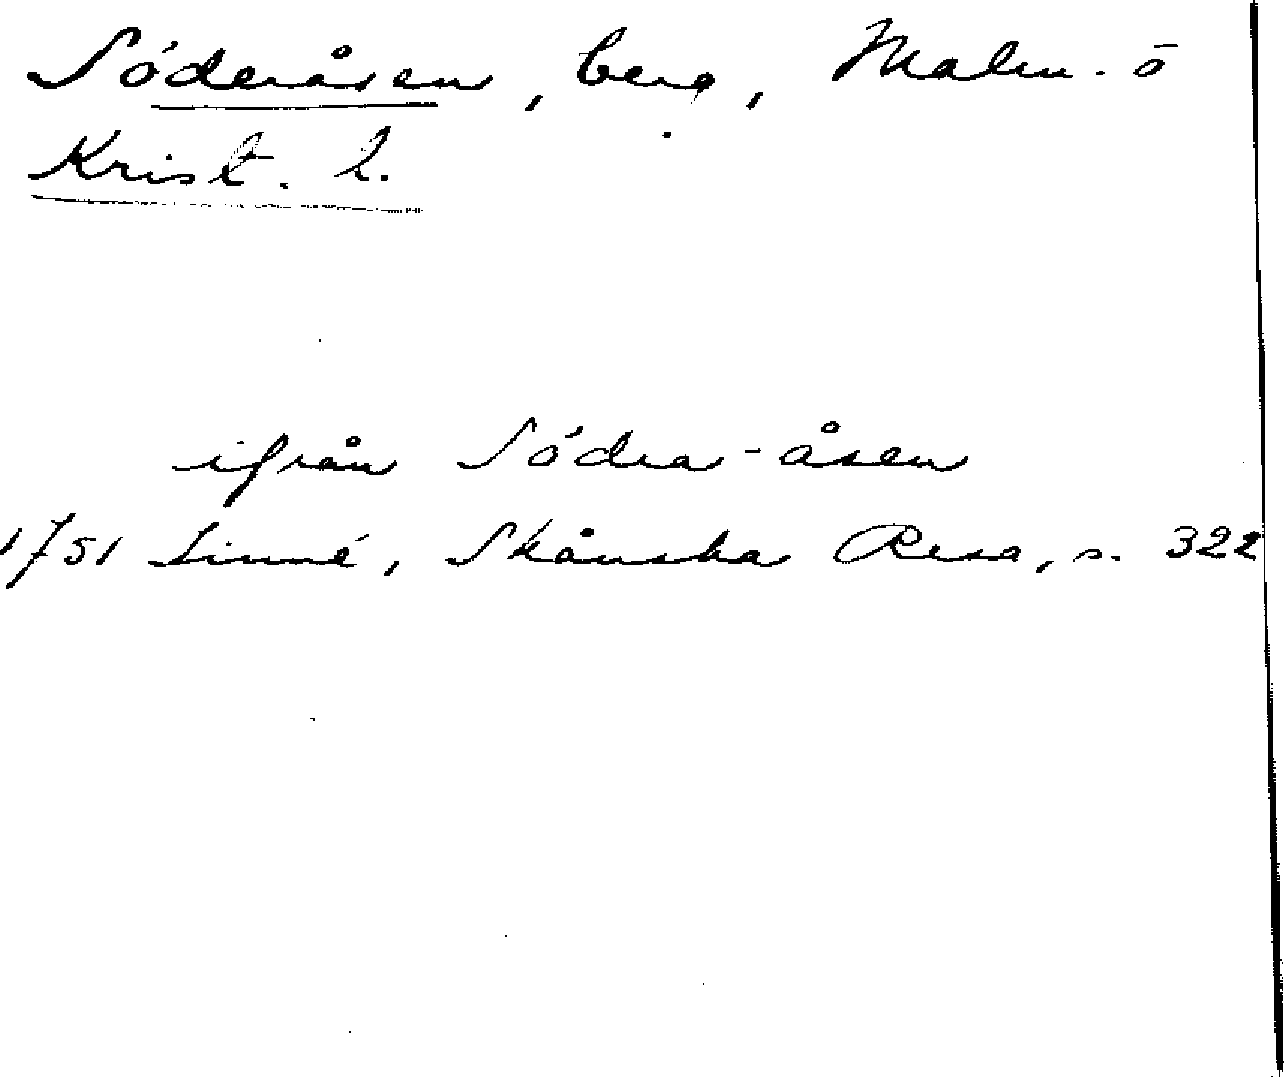 Söderåsen, berg, Malm. o
Krist. l.
ifrån Södra-åsen
1751 Linné, Skånska Resa, s. 322